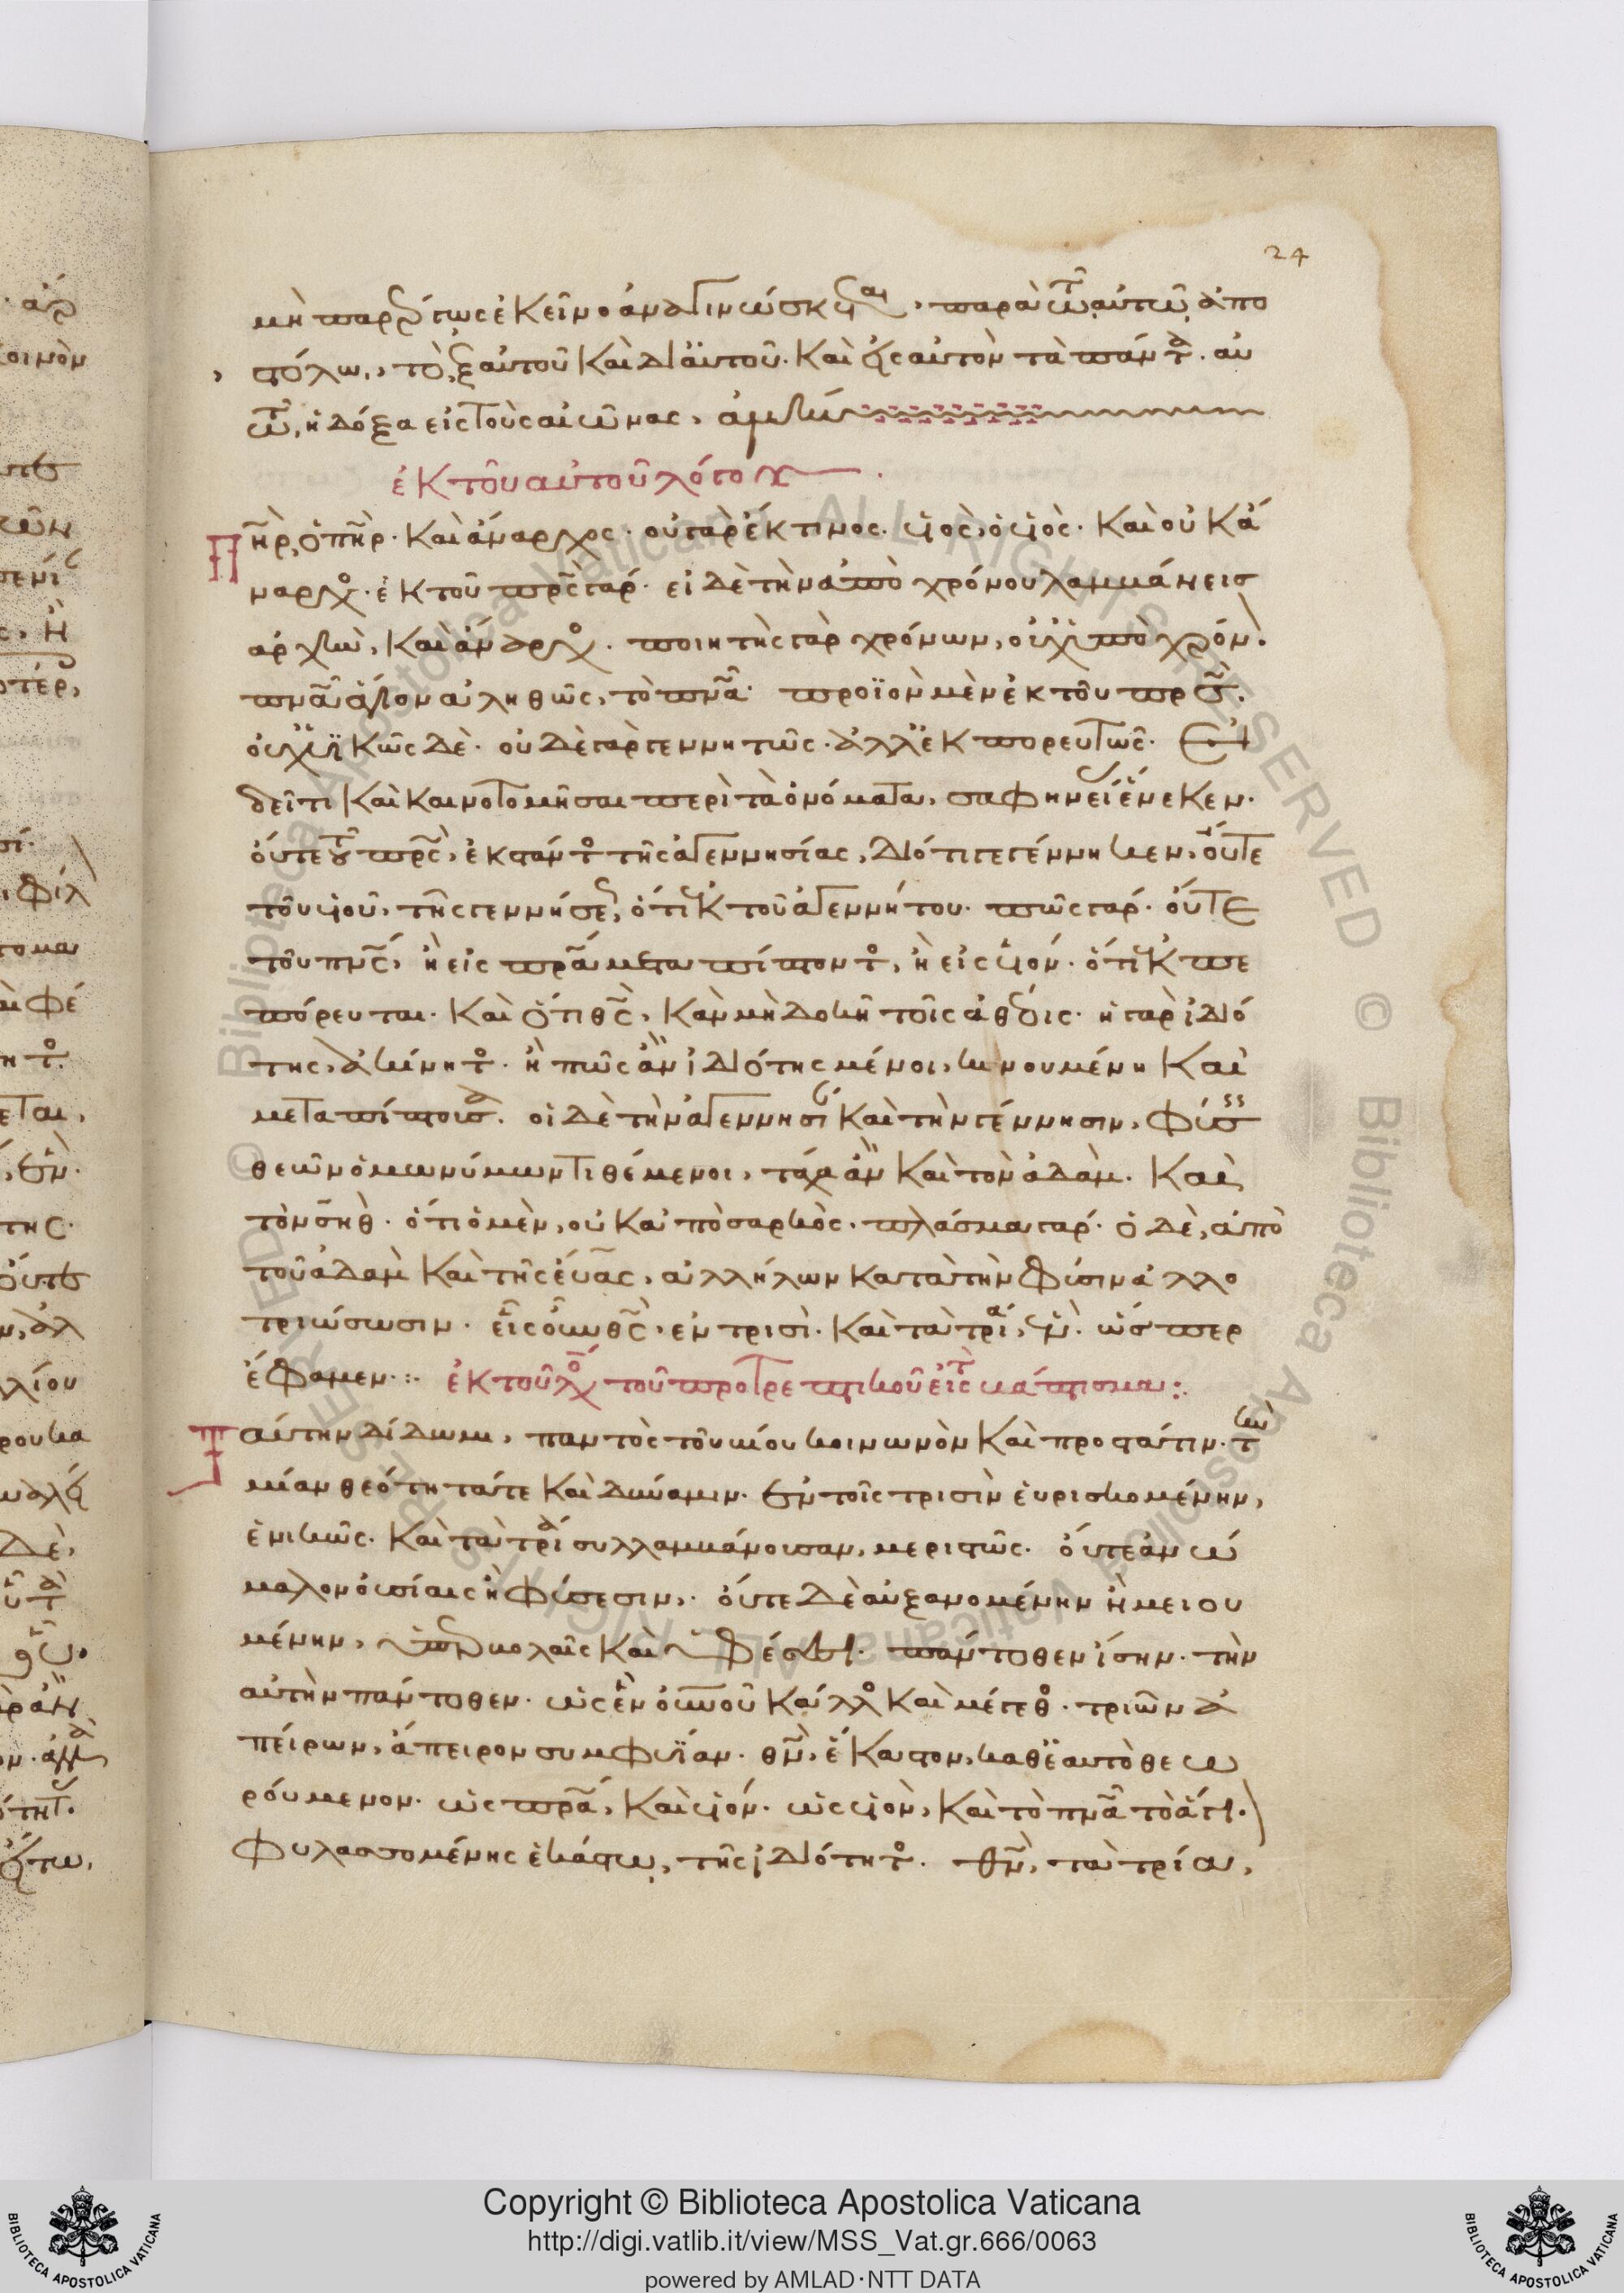 24
μὴ παρέργως ἐκεῖνο ἀναγινώσκηται, παρὰ τῷ αὐτῷ ἀπο
στόλῳ, τὸ, ἐξ αὐτοῦ καὶ δι' αὐτοῦ. καὶ εἰς αὐτὸν τὰ πάντα. αὐ
τῷ, ἡ δόξα εἰς τοὺς αἰῶνας, ἀμήν
ἐκ τοῦ αὐτοῦ λόγου
Πηρ, ὁ πηρ. καὶ ἄναρχος. οὐ γὰρ ἔκ τινος. υἱὸς, ὁ υἱὸς. καὶ οὐκ ἄ
ναρχος. ἐκ τοῦ πρς γάρ. εἰ δὲ τὴν ἀπὸ χρόνου λαμβάνεις
ἀρχὴν, καὶ ἄναρχος. ποιητὴς γὰρ χρόνων, οὐχ' ὑπὸ χρόν.
πνα ἅγιον ἀληθῶς, τὸ πνα. προϊὸν μὲν ἐκ τοῦ πρς.
οὐχ' ϋϊκῶς δὲ. οὐδὲ γὰρ γεννητῶς. ἀλλ' ἐκπορευτῶς. εἰ
δεῖ τι καὶ καινοτομῆσαι περὶ τὰ ὀνόματα, σαφηνείας ἕνεκεν.
οὔτε τοῦ πρς, ἐκστάντος τῆς ἀγεννησίας, διότι γεγέννηκεν, οὔτε
τοῦ υἱοῦ, τῆς γεννήσεως, ὅτι ἐκ τοῦ ἀγεννήτου. πῶς γάρ. οὔτε
τοῦ πνς, ἢ εἰς πρα μεταπίπτοντος, ἢ εἰς υἱόν. ὅτι ἐκπε
πόρευται. καὶ ὅτι θς, κἂν μὴ δοκῇ τοῖς ἀθέοις. ἡ γὰρ ἰδιό
της, ἀκίνητος. ἢ πῶς ἂν ἰδιότης μένοι, κινουμένη καὶ
μεταπίπτουσα. οἱ δὲ τὴν ἀγεννησίαν καὶ τὴν γέννησιν, φύσεις
θεῶν ὁμωνύμων τιθέμενοι, τάχα ἂν καὶ τὸν ἀδὰμ. καὶ
τὸν σὴθ. ὅτι ὁ μὲν, οὐκ ἀπὸ σαρκὸς. πλάσμα γάρ. ὁ δὲ, ἀπὸ
τοῦ ἀδὰμ καὶ τῆς εὔας, ἀλλήλων κατὰ τὴν φύσιν ἀλλο
τριώσωσιν. εἷς οὖν θς, ἐν τρισὶ. καὶ τὰ τρία, ἕν. ὥσπερ
ἔφαμεν.:. ἐκ τοῦ λόγου τοῦ προτρεπτικοῦ εἰς τὸ βάπτισμα:.
Ταύτην δίδωμι, παντὸς τοῦ βίου κοινωνὸν καὶ προστάτιν. τὴν
μίαν θεότητά τε καὶ δύναμιν. ἐν τοῖς τρισὶν εὑρισκομένην,
ἑνικῶς. καὶ τὰ τρία συλλαμβάνουσαν, μεριστῶς. οὔτε ἀνώ
μαλον οὐσίαις ἢ φύσεσιν, οὔτε δὲ αὐξανομένην ἢ μειου
μένην, ὑπερβολαῖς καὶ ὑφέσεσι. πάντοθεν ἴσην. τὴν
αὐτὴν πάντοθεν. ὡς ἓν οὐνοῦ κάλλος καὶ μέγεθος. τριῶν ἀ
πείρων, ἄπειρον συμφυΐαν. θν, ἕκαστον, καθ' ἑαυτὸ θεω
ρούμενον. ὡς πρα, καὶ υἱόν. ὡς υἱὸν, καὶ τὸ πνα τὸ ἅγι.
φυλασσομένης ἑκάστῳ, τῆς ἰδιότητος. θν, τὰ τρία,
Copyright © Biblioteca Apostolica Vaticana
http://digi.vatlib.it/view/MSS_Vat.gr.666/0063
powered by AMLAD·NTT DATA